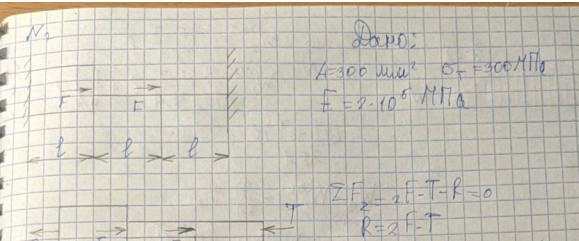 N2
Дано:
A=300 мм² σт=300МПа
E=2·10⁵ МПа
F F
l l l
ΣFz=2F-T-R=0
T
R=2F-T